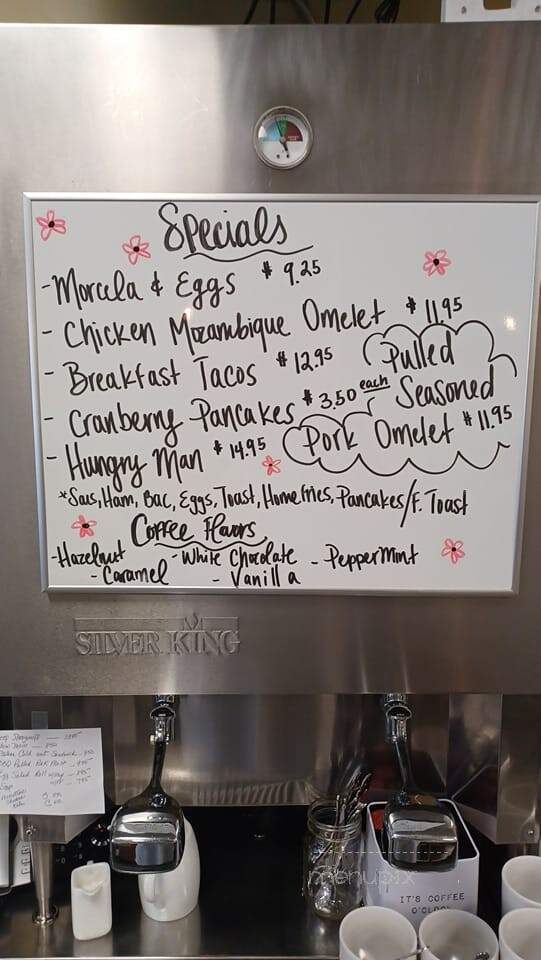 Specials
- Morcela & Eggs $ 9.25
- Chicken Mozambique Omelet $ 11.95
- Breakfast Tacos $ 12.95
- Cranberry Pancakes $ 3.50 each
- Hungry Man $ 14.95
Pulled
Seasoned
Pork Omelet $ 11.95
*Saus, Ham, Bac, Eggs, Toast, Homefries, Pancakes/F. Toast
Coffee Flavors
- Hazelnut - White Chocolate - PepperMint
- Caramel - Vanilla
SILVER KING
menupix
IT'S COFFEE